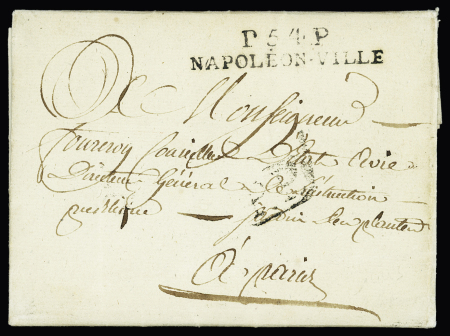 P 54 P
NAPOLÉON-VILLE
A Monseigneur
fourcroy Conseiller D'état a vie
Directeur Général De l'instruction
publique — jardin des plantes
à paris